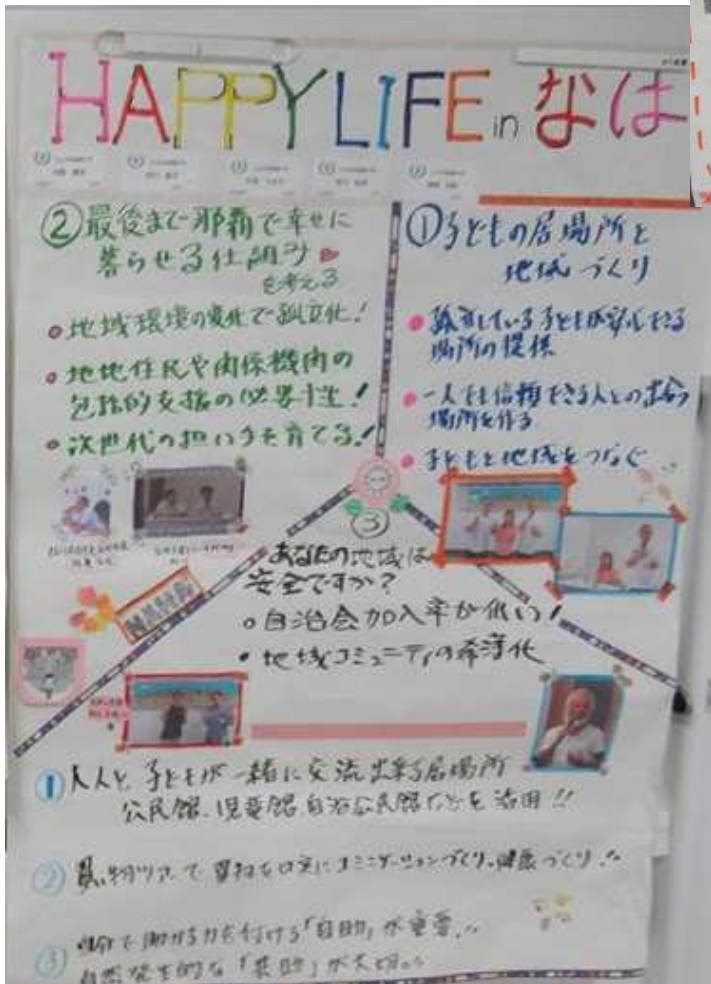 HAPPY LIFE in なは
②最後まで那覇で幸せに
暮らせる仕組み
を考える
地域環境の変化で孤立化!
地地住民や関係機関の
包括的支援の必要性!
次世代の担い手を育てる!
①子どもの居場所と
地域づくり
孤立している子どもが安心できる
場所の提供
一人でも信頼できる人との出会う
場所を作る
子どもと地域をつなぐ
③
あなたの地域は
安全ですか?
自治会加入率が低い!
地域コミュニティの希薄化
①大人と子どもが一緒に交流出来る居場所
公民館、児童館、自治公民館などを活用!!
②買い物ツアーで
コミュニケーションづくり、健康づくり
③自分で助かる力を付ける「自助」が重要
自然発生的な「共助」が大切